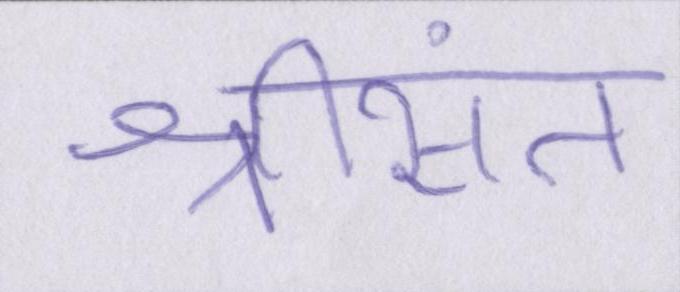 श्रीसंत